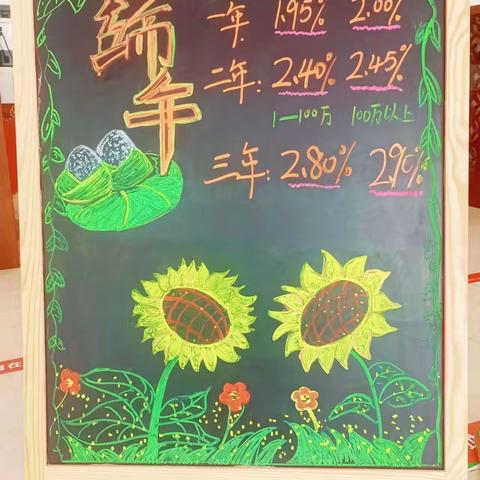 端午
一年 1.95% 2.00%
二年: 2.40% 2.45%
1—100万 100万以上
三年: 2.80% 2.90%
在